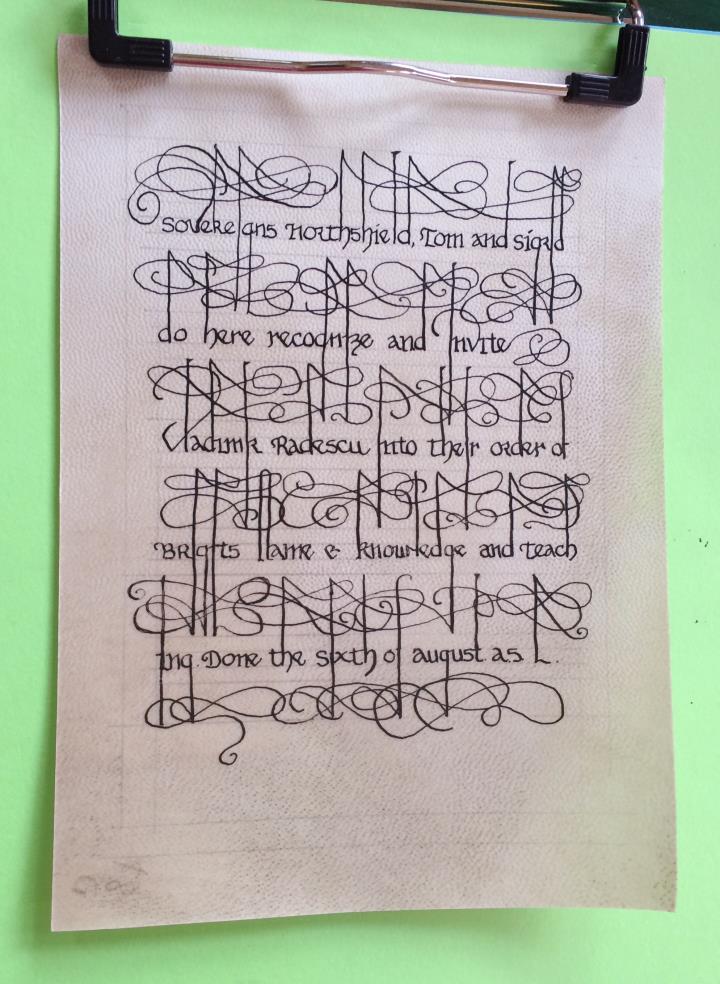 Sovereigns Northshield, Tom and Sigrid
do here recognize and invite
Vladimir Radescu into their order of
Brigits flame & knowledge and teach
ing. Done the sixth of august as L.